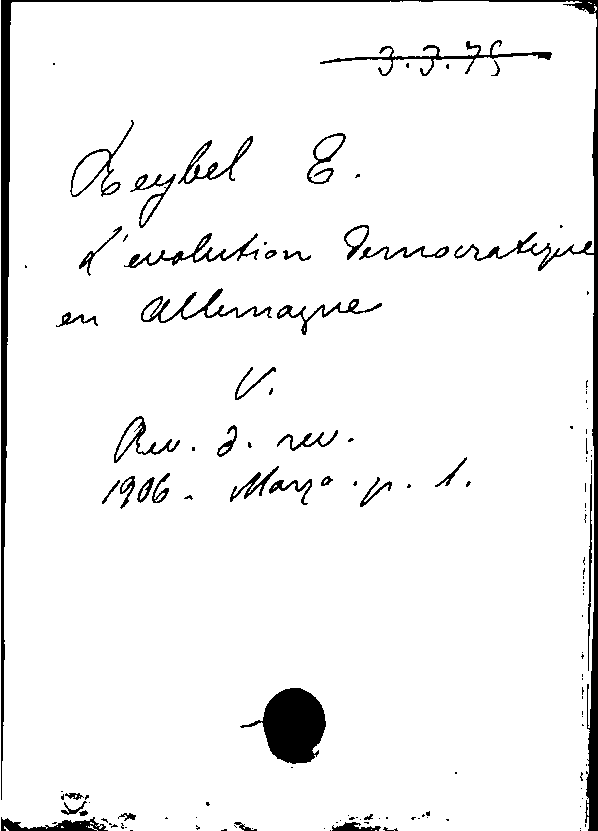 3.3.75
Reybel E.
L'evolution democratique
en Allemagne
V.
Rev. d. rev.
1906 - Marzo. p. 1.